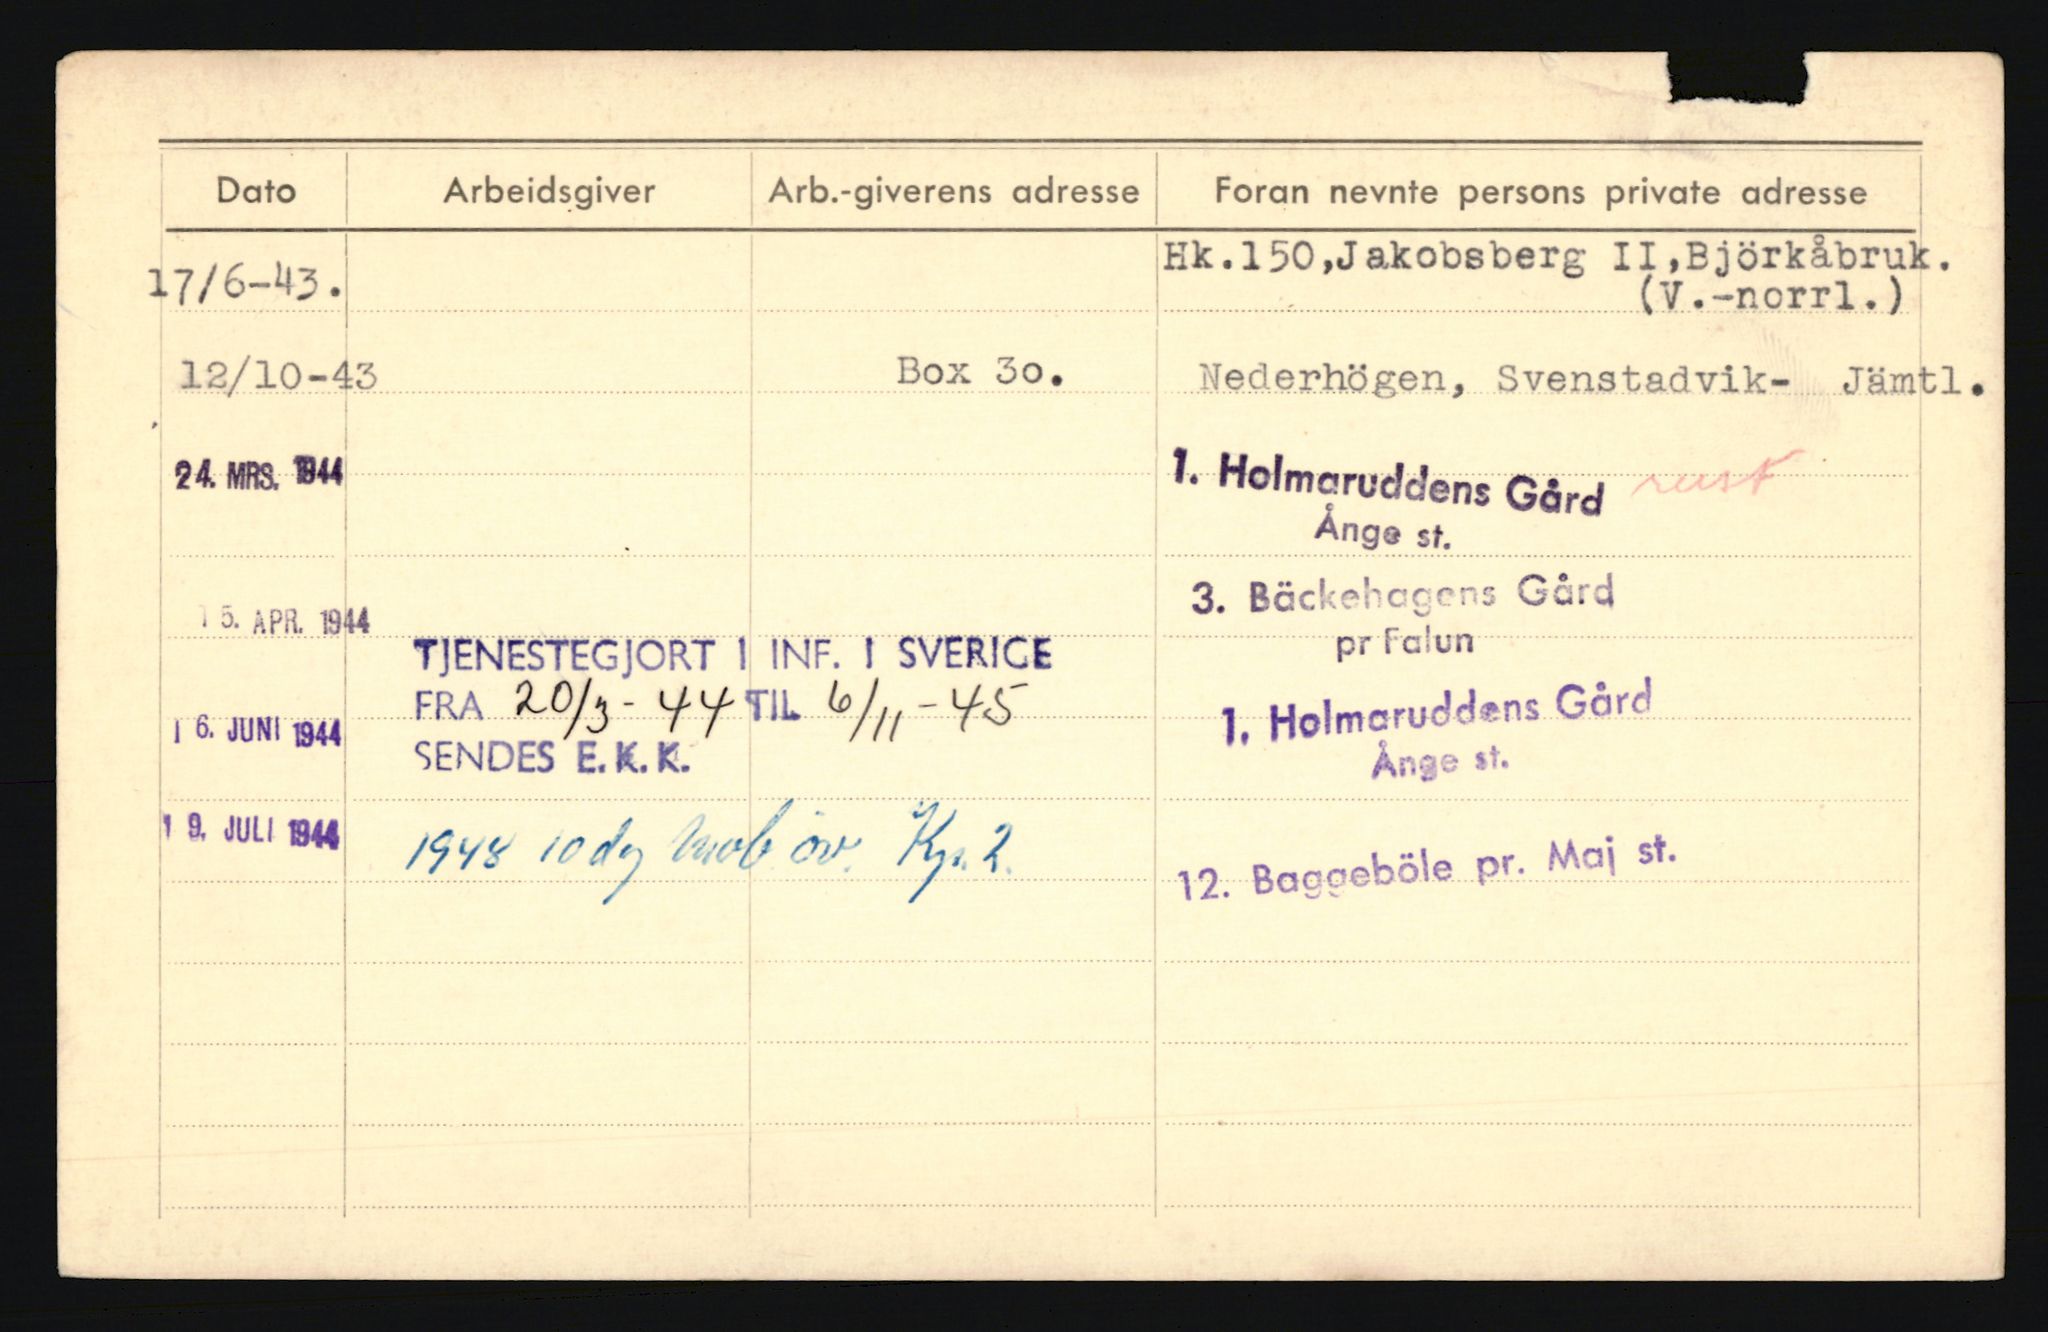 Dato Arbeidsgiver Arb.-giverens adresse Foran nevnte persons private adresse
17/6-43. Hk.150,Jakobsberg II,Björkåbruk.
(V.-norrl.)
12/10-43 Box 30. Nederhögen, Svenstadvik- Jämtl.
24. MRS. 1944 1. Holmaruddens Gård rust
Ånge st.
15. APR. 1944 3. Bäckehagens Gård
pr Falun
TJENESTEGJORT I INF. I SVERIGE
FRA 20/3-44 TIL 6/11-45
SENDES E.K.K.
16. JUNI 1944 1. Holmaruddens Gård
Ånge st.
19. JULI 1944 12. Baggeböle pr. Maj st.
1948 10 dg mob öv. Kp. 2.